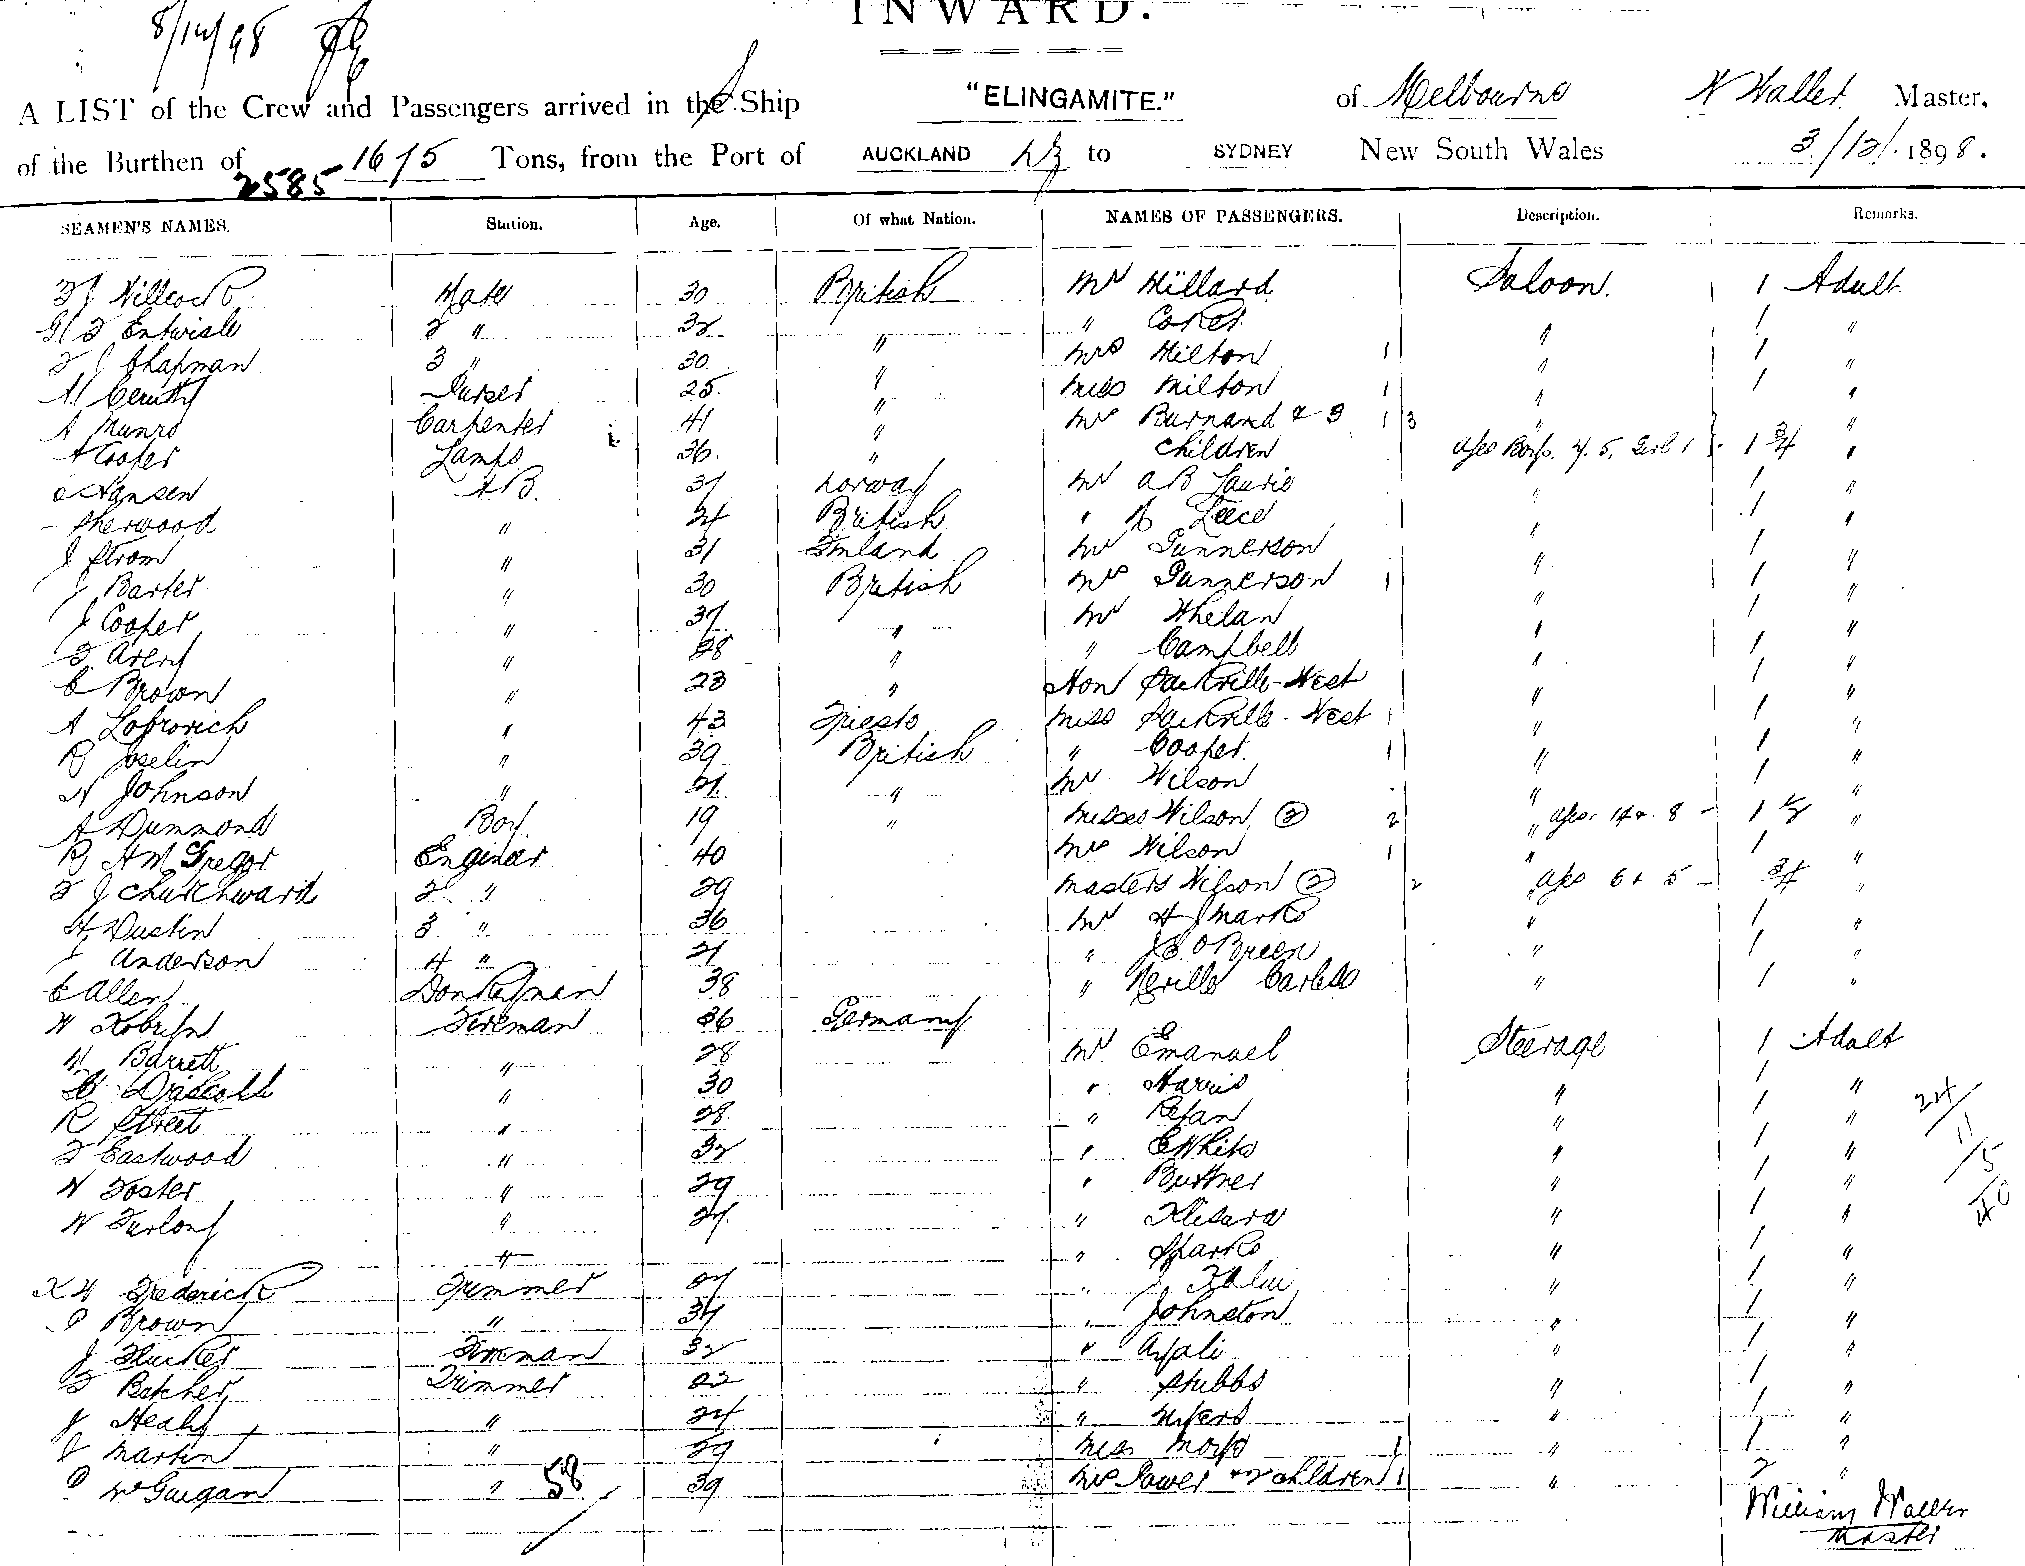 INWARD.
8/12/98
A LIST of the Crew and Passengers arrived in the S. Ship "ELINGAMITE." of Melbourne W Waller Master,
of the Burthen of 1675 Tons, from the Port of AUCKLAND NZ to SYDNEY New South Wales 3/12/1898.
2585
SEAMEN'S NAMES. Station. Age. Of what Nation. NAMES OF PASSENGERS. Description. Remarks.
Mate 30 British Mr Millard Saloon. 1 Adult
Entwisle 2 " 32 " " Coker " 1 "
F J Chapman 3 " 30 " Mrs Milton 1 " 1 "
Purser 25 " Miss Milton 1 " 1 "
A Munro Carpenter 41 " Mr Burnand & 3 1 3 "
A Cooper Lamps 36 " children 1 3/4 "
Hansen A.B. 37 Norway Mr A B Laurie " 1 "
- Sherwood " 24 British " Leece " 1 "
J Strom " 31 Finland Mr Gunnerson " 1 "
J Barter " 30 British Mrs Gunnerson 1 " 1 "
J Cooper " 37 " Mr Whelan " 1 "
F Avery " 28 " " Campbell " 1 "
C Brown " 23 " Hon Sackville-West " 1 "
A Lobrovich " 43 Trieste Miss Sackville-West 1 " 1 "
R Joselin " 39 British " Cooper 1 " 1 "
N Johnson " 21 " Mr Wilson " 1 "
A Dummond Boy 19 " Misses Wilson (2) 2 " ages 14 & 8 - 1 1/2 "
R A McGregor Engineer 40 Mrs Wilson 1 " 1 "
F J Churchward 2 " 29 Masters Wilson (2) 2 " ages 6 & 5 - 3/4 "
H Dustin 3 " 36 Mr H J Marks " 1 "
J Anderson 4 " 21 " J B O'Brien " 1 "
C Allen Donkeyman 38 " Neville " 1 "
W Fireman 36 Germany
H Barrett " 28 Mr Emanuel Steerage 1 Adult
Driscoll " 30 " Harris " 1 "
R Street " 28 " " 1 "
F Eastwood " 32 " E White " 1 "
W Foster " 29 " Buttner " 1 "
W Furlong " 27 " " 1 "
" " Sparks " 1 "
X H Frederick Trimmer 27 " J " 1 "
P Brown " 34 " Johnston " 1 "
J Fireman 32 " " 1 "
F Trimmer 22 " Stubbs " 1 "
J Healy " 24 " Myers " 1 "
J Martin " 29 Miss 1 " 1 "
P McGuigan " 39 Mrs Power & 2 children 1 " 2 "
58
24/
11
/5
40
William Waller
Master